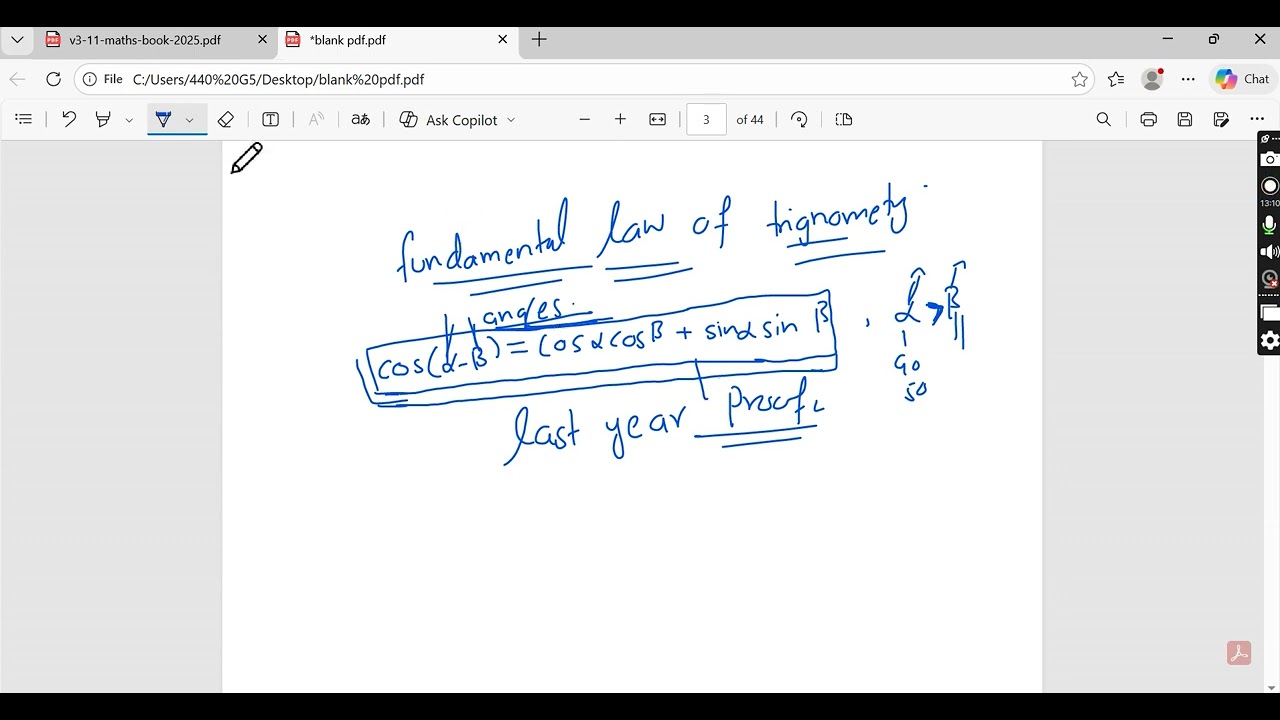 v3-11-maths-book-2025.pdf
*blank pdf.pdf
File C:/Users/440%20G5/Desktop/blank%20pdf.pdf
Chat
aあ
Ask Copilot
3 of 44
13:10
fundamental law of trignomety
angles
cos(α-β) = cos α cos β + sinα sin β , α > β
90
50
last year proof